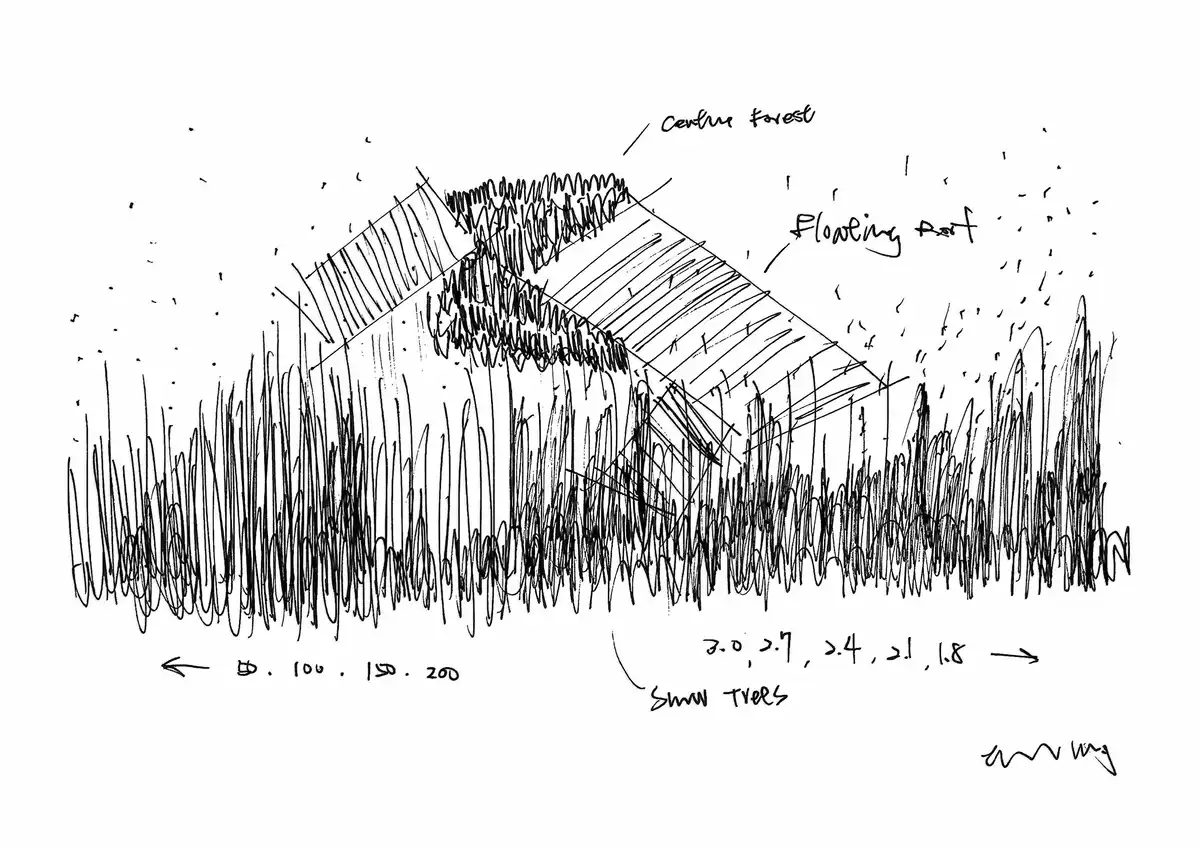 Centre Forest
Floating Roof
50 . 100 . 150 . 200
3.0, 2.7, 2.4, 2.1, 1.8
Trees